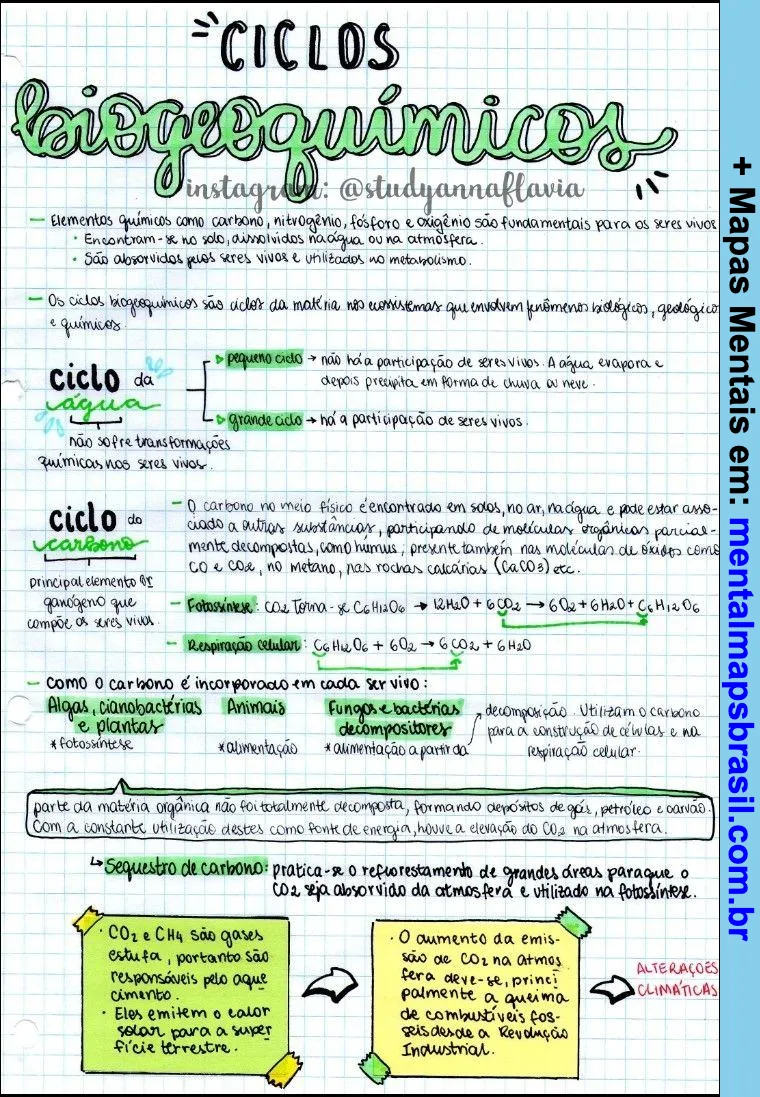 CICLOS
biogeoquímicos
instagram: @studyannaflavia
— Elementos químicos como carbono, nitrogênio, fósforo e oxigênio são fundamentais para os seres vivos
• Encontram-se no solo, dissolvidos na água ou na atmosfera.
• São absorvidos pelos seres vivos e utilizados no metabolismo.
— Os ciclos biogeoquímicos são ciclos da matéria nos ecossistemas que envolvem fenômenos biológicos, geológico
e químicos.
ciclo da
água
não sofre transformações
químicas nos seres vivos.
▷ pequeno ciclo → não há a participação de seres vivos. A água evapora e
depois precipita em forma de chuva ou neve.
▷ grande ciclo → há a participação de seres vivos.
ciclo do
carbono
principal elemento or
ganógeno que
compõe os seres vivos.
— O carbono no meio físico é encontrado em solos, no ar, na água e pode estar asso-
ciado a outras substâncias, participando de moléculas orgânicas parcial-
mente decompostas, como húmus, presente também nas moléculas de óxidos como
CO e CO2, no metano, nas rochas calcárias (CaCO3) etc.
— Fotossíntese: CO2 torna-se C6H12O6 → 12H2O + 6CO2 → 6O2 + 6H2O + C6H12O6
— Respiração celular: C6H12O6 + 6O2 → 6CO2 + 6H2O
— como o carbono é incorporado em cada ser vivo:
Algas, cianobactérias
e plantas
*fotossíntese
Animais
*alimentação
Fungos e bactérias
decompositores
*alimentação a partir da
decomposição. Utilizam o carbono
para a construção de células e na
respiração celular.
parte da matéria orgânica não foi totalmente decomposta, formando depósitos de gás, petróleo e carvão.
Com a constante utilização destes como fonte de energia, houve a elevação do CO2 na atmosfera.
↳ Sequestro de carbono: pratica-se o reflorestamento de grandes áreas para que o
CO2 seja absorvido da atmosfera e utilizado na fotossíntese.
• CO2 e CH4 são gases
estufa, portanto são
responsáveis pelo aque
cimento.
• Eles emitem o calor
solar para a super
fície terrestre.
• O aumento da emis-
são de CO2 na atmos
fera deve-se, princi
palmente a queima
de combustíveis fós-
seis desde a Revolução
Industrial.
ALTERAÇÕES
CLIMÁTICAS
+ Mapas Mentais em: mentalmapsbrasil.com.br